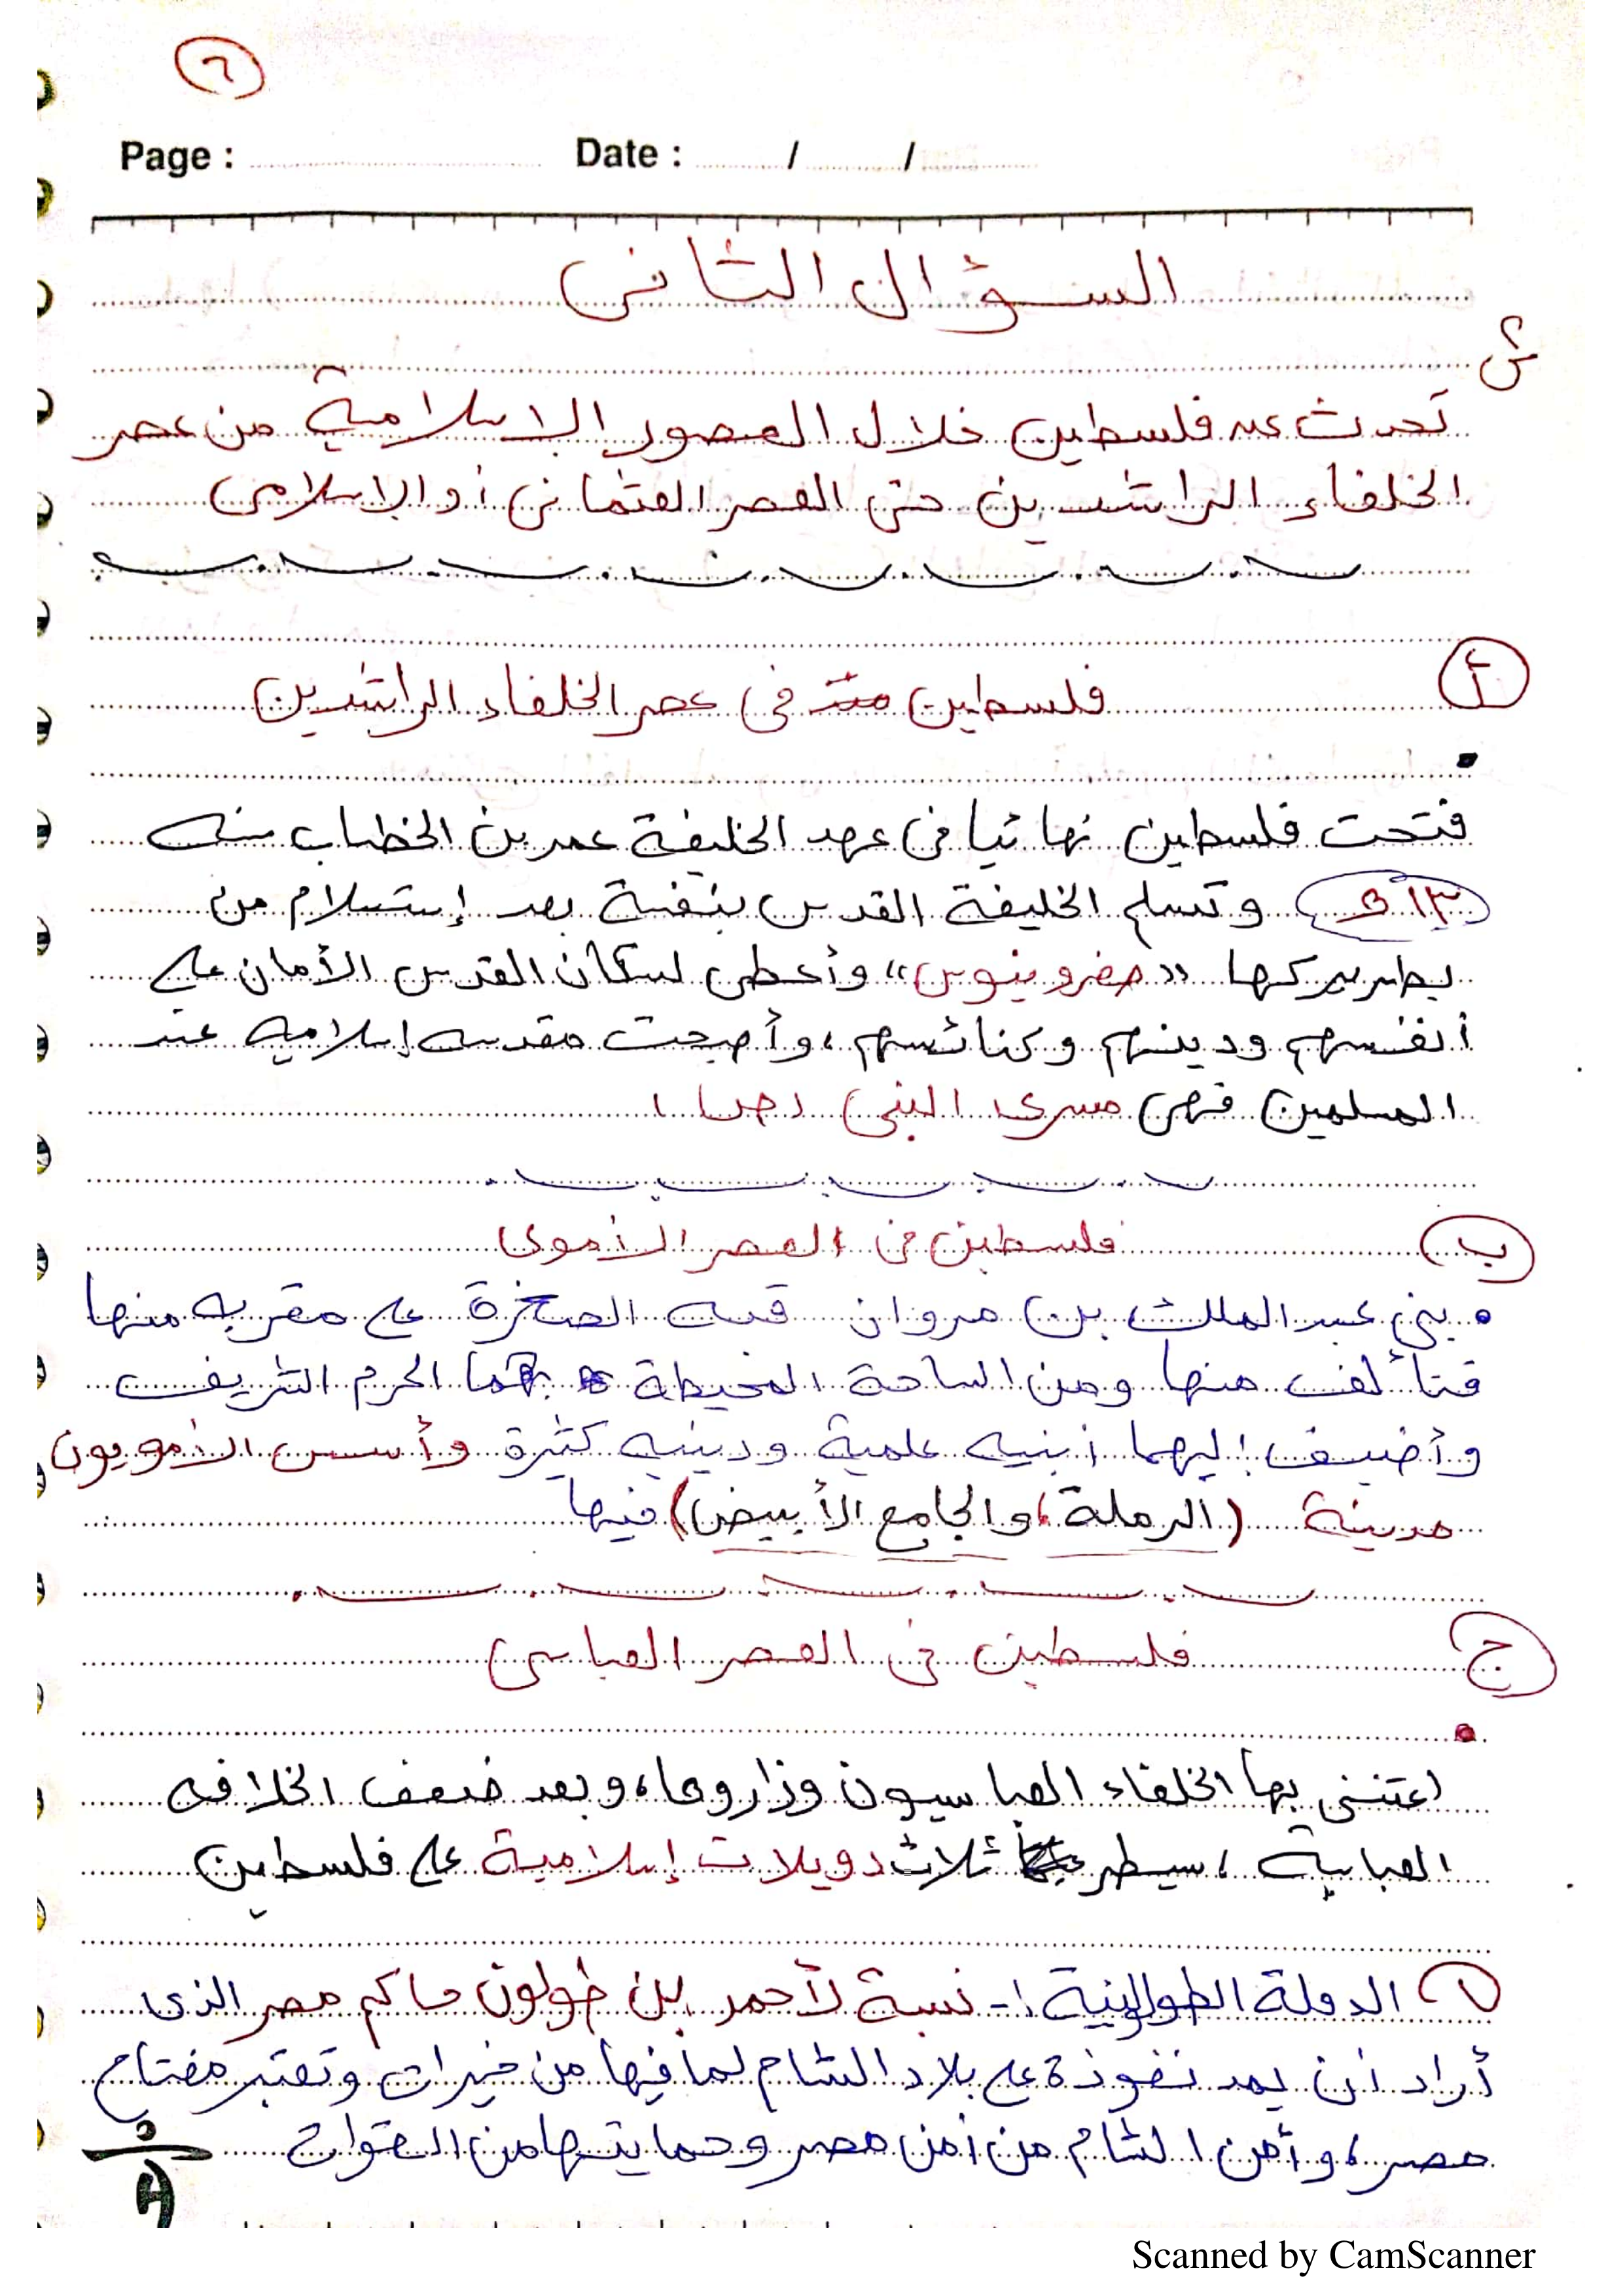 ٦
Page : Date : / /
السؤال الثانى
س
تحدث عن فلسطين خلال العصور الإسلامية من عصر
الخلفاء الراشدين حتى العصر العثمانى أو الإسلامى
أ
فلسطين فى عصر الخلفاء الراشدين
فتحت فلسطين نهائيا فى عهد الخليفة عمر بن الخطاب سنه
وتسلم الخليفة القدس بنفسة بعد إستسلام من
بطريركها "صفرونيوس" وأعطى لسكان القدس الأمان على
أنفسهم ودينهم وكنائسهم، وأصبحت مقدسه إسلاميه عند
المسلمين فهى مسرى النبى
ب
فلسطين فى العصر الأموى
• بنى عبد الملك بن مروان قبه الصخرة على مقربه منها
فتألف منها ومن الساحة المحيطة بهما الحرم الشريف
وأضيف إليهما أبنيه علمية ودينيه كثيرة وأسس الأمويون
مدينة (الرملة، والجامع الأبيض) فيها
ج
فلسطين فى العصر العباسى
اعتنى بها الخلفاء العباسيون وزاروها، وبعد ضعف الخلافه
العباسية، سيطر ثلاث دويلات إسلامية على فلسطين
١ الدولة الطولونية :- نسبة لأحمد بن طولون حاكم مصر الذى
أراد أن يمد نفوذة على بلاد الشام لما فيها من خيرات وتعتبر مفتاح
مصر، وأمن الشام من أمن مصر وحمايتها من القوات
Scanned by CamScanner